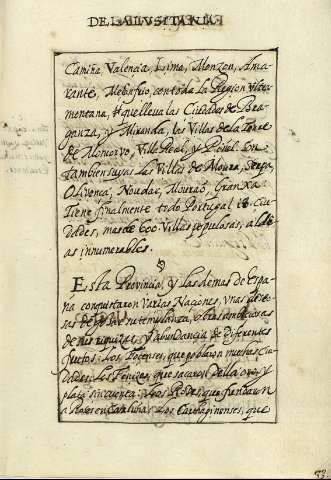 DE LA LUSITANIA
Camiña, Valencia, Lima, Monzon, Ama
rante, con toda la Region
montana, que lleva las Ciudades de Bra
ganza, y Miranda, las Villas de la Torre
de Villa Real, y Son
tambien suyas las Villas de Moura, Serpa,
Olivenca, Noudar, Mouraõ,
Tiene finalmente todo Portugal 18 Ciu
dades, mas de 600 Villas populosas, alde
as innumerables.
Esta Provincia, y las demas de Espa
ña conquistaron Varias Naciones, vnas
otras
de sus riquezas, y abundancia de diferentes
frutos: Los que poblaron muchas Ciu
dades: Los Fenizes, que sacaron della oro, y
plata sin cuenta: Los Rodes, que fundaron
a Roses en Cataluña: Los Cartaginenses, que